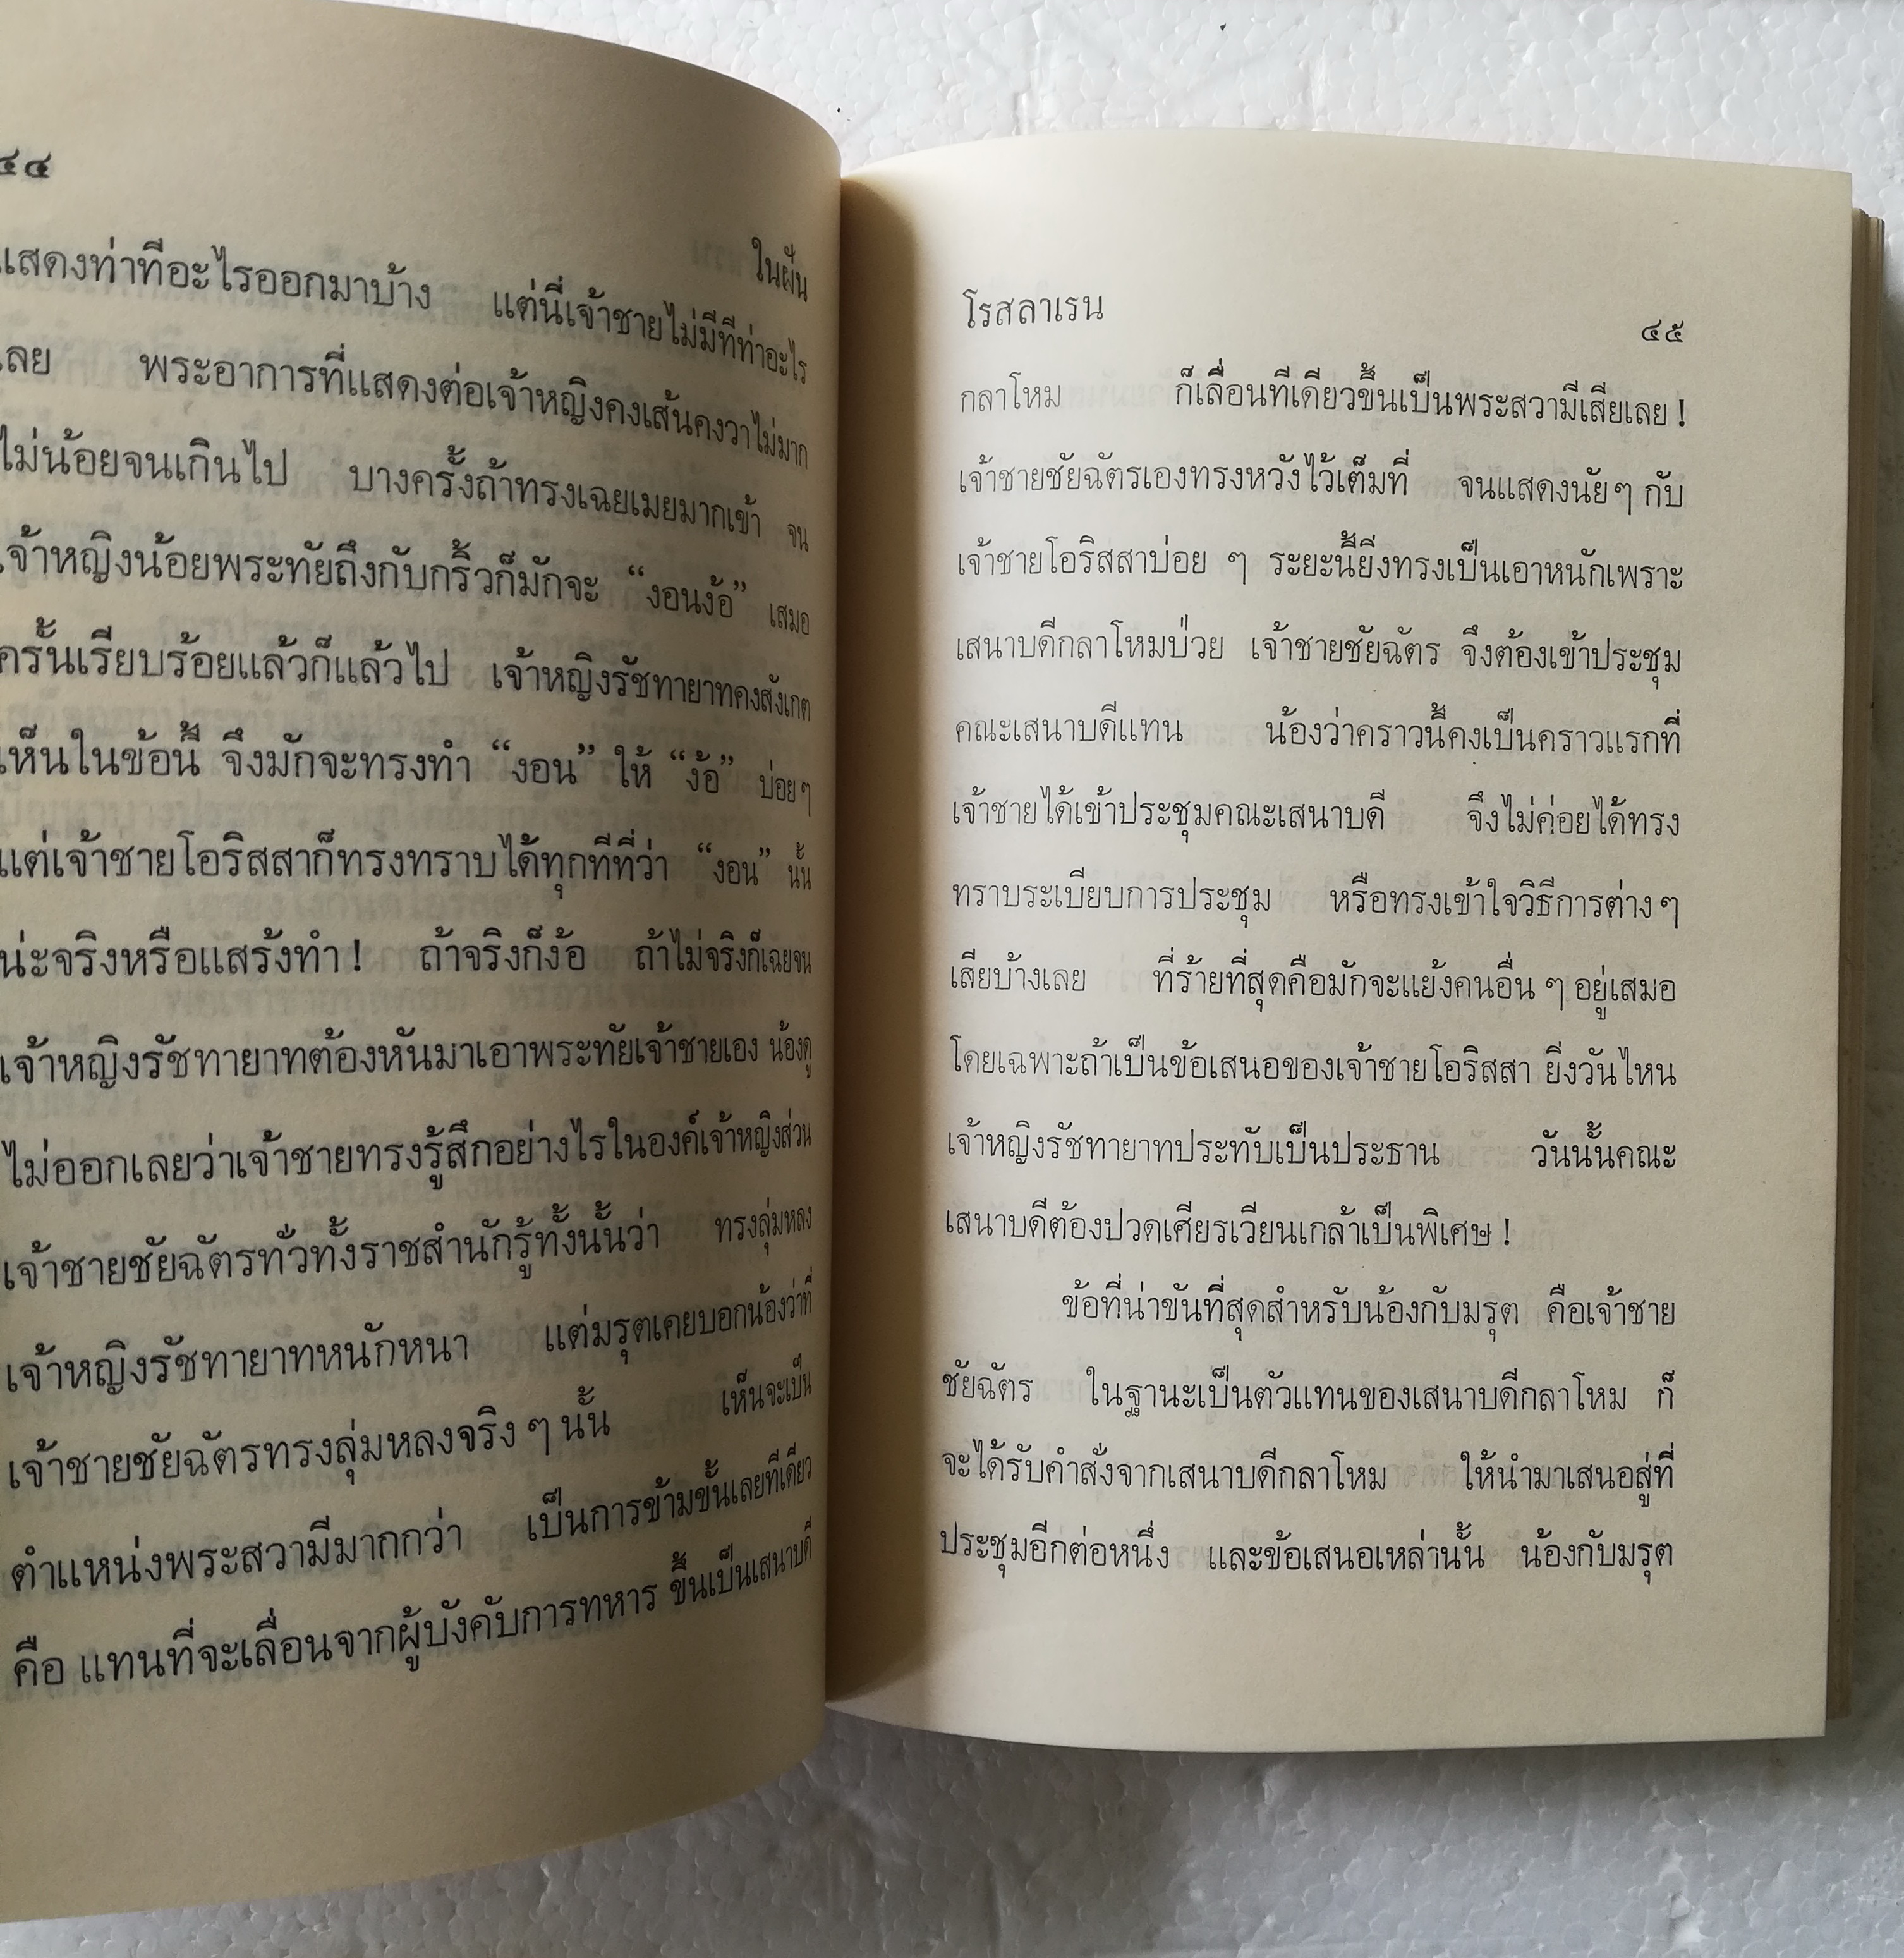 ๔๔
ในฝัน
แสดงท่าทีอะไรออกมาบ้าง แต่นี่เจ้าชายไม่มีทีท่าอะไร
เลย พระอาการที่แสดงต่อเจ้าหญิงคงเส้นคงวาไม่มาก
ไม่น้อยจนเกินไป บางครั้งถ้าทรงเฉยเมยมากเข้า จน
เจ้าหญิงน้อยพระทัยถึงกับกริ้วก็มักจะ “งอนง้อ” เสมอ
ครั้นเรียบร้อยแล้วก็แล้วไป เจ้าหญิงรัชทายาทคงสังเกต
เห็นในข้อนี้ จึงมักจะทรงทำ “งอน” ให้ “ง้อ” บ่อยๆ
แต่เจ้าชายโอริสสาก็ทรงทราบได้ทุกทีที่ว่า “งอน” นั้น
น่ะจริงหรือแสร้งทำ ! ถ้าจริงก็ง้อ ถ้าไม่จริงก็เฉยจน
เจ้าหญิงรัชทายาทต้องหันมาเอาพระทัยเจ้าชายเอง น้องดู
ไม่ออกเลยว่าเจ้าชายทรงรู้สึกอย่างไรในองค์เจ้าหญิงส่วน
เจ้าชายชัยฉัตรทั่วทั้งราชสำนักรู้ทั้งนั้นว่า ทรงลุ่มหลง
เจ้าหญิงรัชทายาทหนักหนา แต่มรุตเคยบอกน้องว่าที่
เจ้าชายชัยฉัตรทรงลุ่มหลงจริง ๆ นั้น เห็นจะเป็น
ตำแหน่งพระสวามีมากกว่า เป็นการข้ามขั้นเลยทีเดียว
คือ แทนที่จะเลื่อนจากผู้บังคับการทหาร ขึ้นเป็นเสนาบดี
โรสลาเรน
๔๕
กลาโหม ก็เลื่อนทีเดียวขึ้นเป็นพระสวามีเสียเลย !
เจ้าชายชัยฉัตรเองทรงหวังไว้เต็มที่ จนแสดงนัยๆ กับ
เจ้าชายโอริสสาบ่อย ๆ ระยะนี้ยิ่งทรงเป็นเอาหนักเพราะ
เสนาบดีกลาโหมป่วย เจ้าชายชัยฉัตร จึงต้องเข้าประชุม
คณะเสนาบดีแทน น้องว่าคราวนี้คงเป็นคราวแรกที่
เจ้าชายได้เข้าประชุมคณะเสนาบดี จึงไม่ค่อยได้ทรง
ทราบระเบียบการประชุม หรือทรงเข้าใจวิธีการต่างๆ
เสียบ้างเลย ที่ร้ายที่สุดคือมักจะแย้งคนอื่น ๆ อยู่เสมอ
โดยเฉพาะถ้าเป็นข้อเสนอของเจ้าชายโอริสสา ยิ่งวันไหน
เจ้าหญิงรัชทายาทประทับเป็นประธาน วันนั้นคณะ
เสนาบดีต้องปวดเศียรเวียนเกล้าเป็นพิเศษ !
ข้อที่น่าขันที่สุดสำหรับน้องกับมรุต คือเจ้าชาย
ชัยฉัตร ในฐานะเป็นตัวแทนของเสนาบดีกลาโหม ก็
จะได้รับคำสั่งจากเสนาบดีกลาโหม ให้นำมาเสนอสู่ที่
ประชุมอีกต่อหนึ่ง และข้อเสนอเหล่านั้น น้องกับมรุต